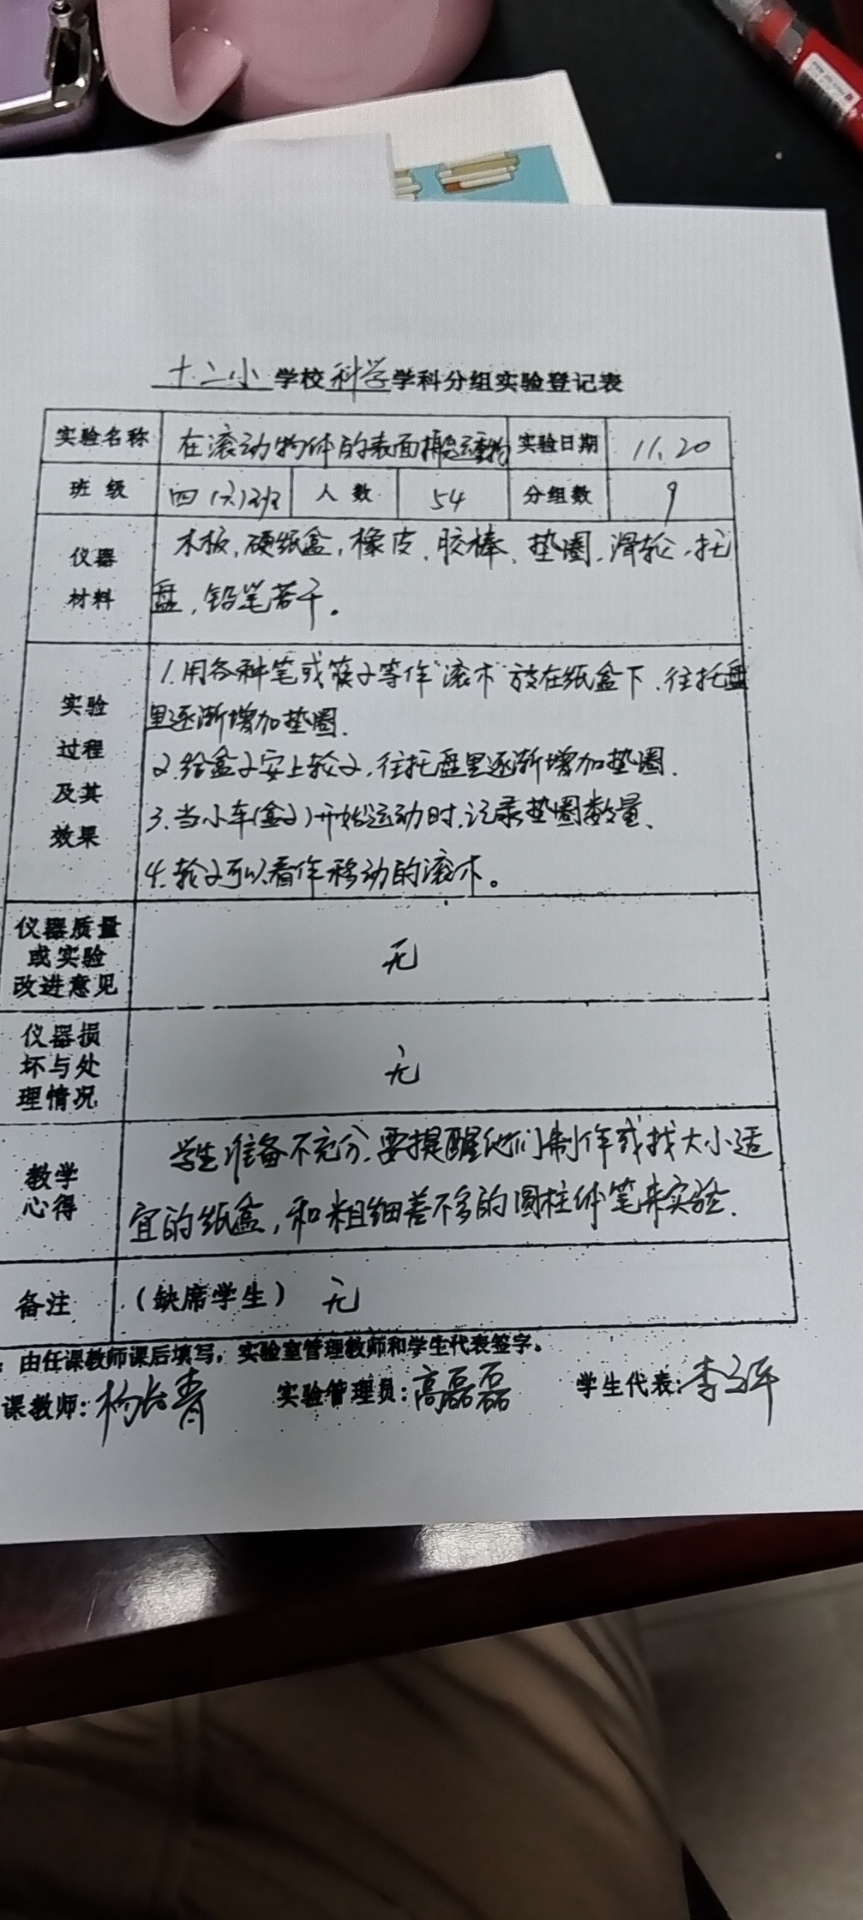 十二小学校科学学科分组实验登记表
实验名称 在滚动物体的表面搬运重物 实验日期 11.20
班级 四(六)班 人数 54 分组数 9
仪器材料 木板,硬纸盒,橡皮、胶棒、垫圈、滑轮、托
盘,铅笔若干。
实验过程及其效果
1.用各种笔或筷子等作"滚木"放在纸盒下、往托盘
里逐渐增加垫圈.
2.给盒子安上轮子,往托盘里逐渐增加垫圈.
3.当小车(盒子)开始运动时,记录垫圈数量、
4.轮子可以看作移动的滚木。
仪器质量或实验改进意见 无
仪器损坏与处理情况 无
教学心得 学生准备不充分,要提醒他们制作或找大小适
宜的纸盒,和粗细差不多的圆柱体笔来实验.
备注 (缺席学生) 无
:由任课教师课后填写,实验室管理教师和学生代表签字。
课教师: 实验管理员:高磊磊 学生代表:李